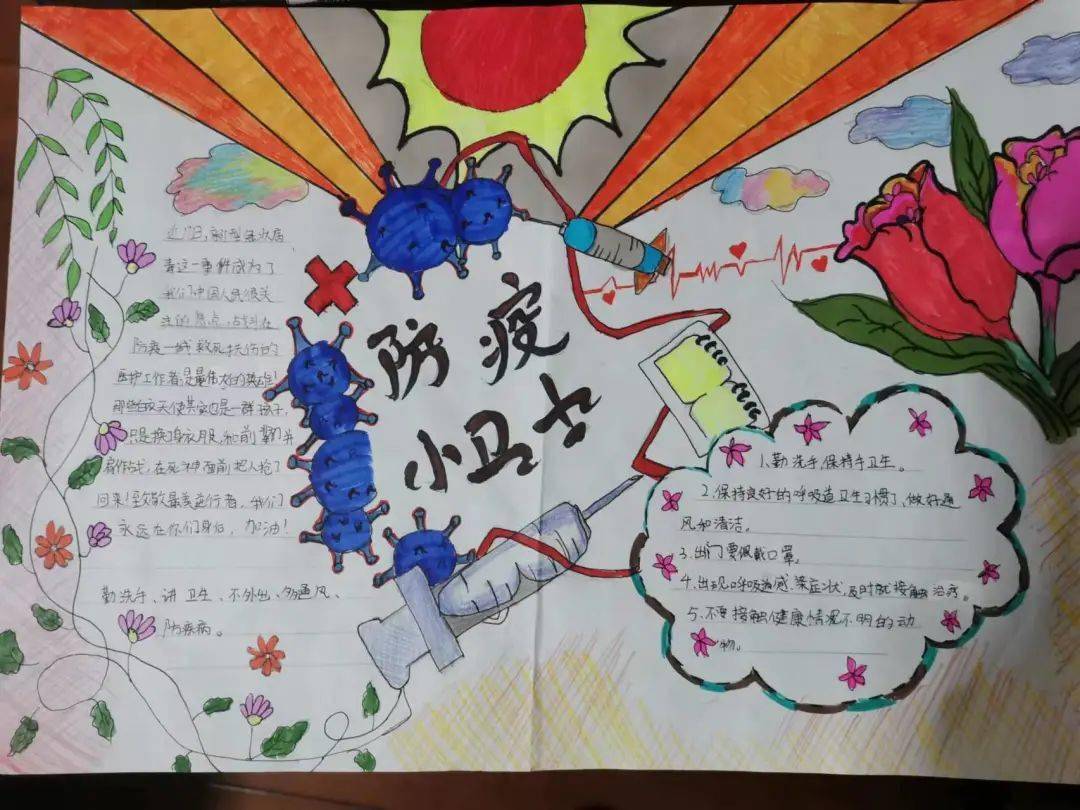 防疫
小卫士
近日,新型冠状病
毒这一事件成为了
我们中国人民最关
注的焦点,战斗在
防疫一线救死扶伤的
医护工作者是最伟大的英雄!
那些白衣天使其实也是一群孩子,
只是换了身衣服,和前辈们并
肩作战,在死神面前把人抢了
回来!致敬最美逆行者,我们
永远在你们身后,加油!
勤洗手、讲卫生、不外出、多通风、
防疾病。
1.勤洗手,保持手卫生。
2.保持良好的呼吸道卫生习惯,做好通
风和清洁。
3.出门要佩戴口罩。
4.出现呼吸道感染症状,及时就接触治疗。
5.不要接触健康情况不明的动
物。